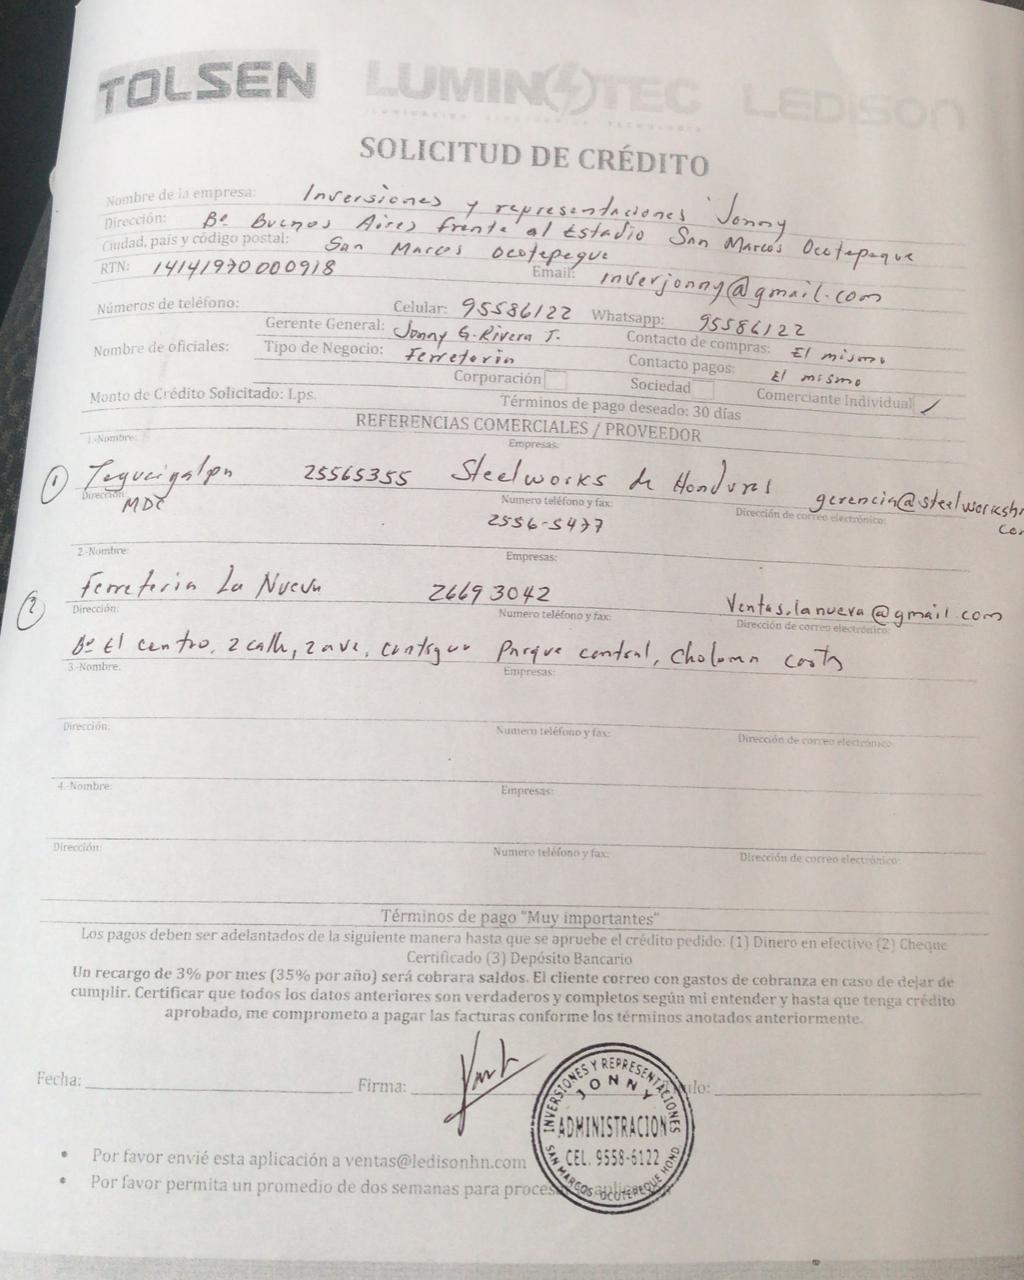 TOLSEN LUMINOTEC LEDISON
SOLICITUD DE CRÉDITO
Nombre de la empresa: Inversiones y representaciones Jonny
Dirección: Bº Buenos Aires frente al Estadio San Marcos Ocotepeque
Ciudad, país y código postal: San Marcos Ocotepeque
RTN: 14141970000918 Email: inverjonny@gmail.com
Números de teléfono: Celular: 95586122 Whatsapp: 95586122
Gerente General: Jonny G. Rivera T. Contacto de compras: El mismo
Nombre de oficiales: Tipo de Negocio: Ferreteria Contacto pagos: El mismo
Corporación Sociedad Comerciante Individual ✓
Monto de Crédito Solicitado: Lps. Términos de pago deseado: 30 días
REFERENCIAS COMERCIALES / PROVEEDOR
1.-Nombre: Empresas:
① Tegucigalpa 25565355 Steelworks de Honduras gerencia@steelworkshn
Dirección: Numero teléfono y fax: Dirección de correo electrónico:
MDC 2556-5477
2.-Nombre: Empresas:
② Ferreteria La Nueva 26693042 Ventas.lanueva@gmail.com
Dirección: Numero teléfono y fax: Dirección de correo electrónico:
Bº El centro, 2 calle, 2 ave, contiguo Parque central, Choloma
3.-Nombre. Empresas:
Dirección: Numero teléfono y fax: Dirección de correo electrónico:
4.-Nombre: Empresas:
Dirección: Numero teléfono y fax: Dirección de correo electrónico:
Términos de pago "Muy importantes"
Los pagos deben ser adelantados de la siguiente manera hasta que se apruebe el crédito pedido: (1) Dinero en efectivo (2) Cheque
Certificado (3) Depósito Bancario
Un recargo de 3% por mes (35% por año) será cobrara saldos. El cliente correo con gastos de cobranza en caso de dejar de
cumplir. Certificar que todos los datos anteriores son verdaderos y completos según mi entender y hasta que tenga crédito
aprobado, me comprometo a pagar las facturas conforme los términos anotados anteriormente.
Fecha: Firma:
INVERSIONES Y REPRESENTACIONES
JONNY
ADMINISTRACION
CEL. 9558-6122
SAN MARCOS OCOTEPEQUE HOND.
• Por favor envié esta aplicación a ventas@ledisonhn.com
• Por favor permita un promedio de dos semanas para